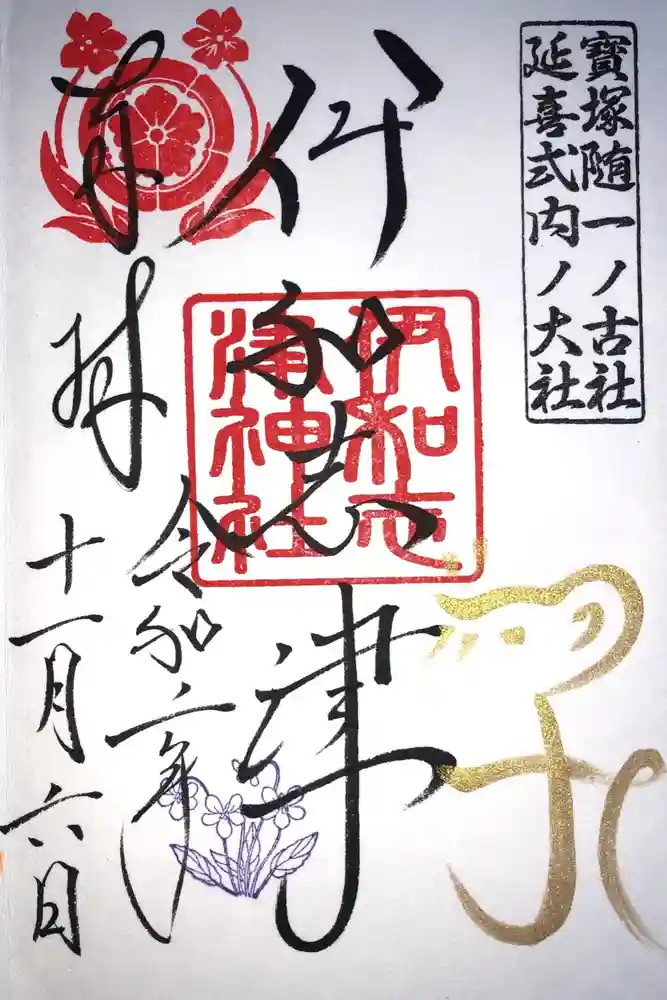 寶塚随一ノ古社
延喜式内ノ大社
伊和志津
伊和志
津神社
奉拝
令和二年
十一月六日
子